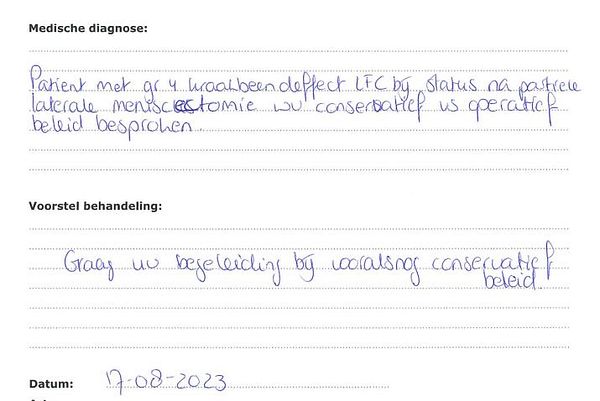 Medische diagnose:
Patient met gr 4 kraakbeendefect LFC bij status na partiele
laterale meniscectomie wv conservatief vs operatief
beleid besproken.
Voorstel behandeling:
Graag uw begeleiding bij vooralsnog conservatief
beleid.
Datum: 17-08-2023